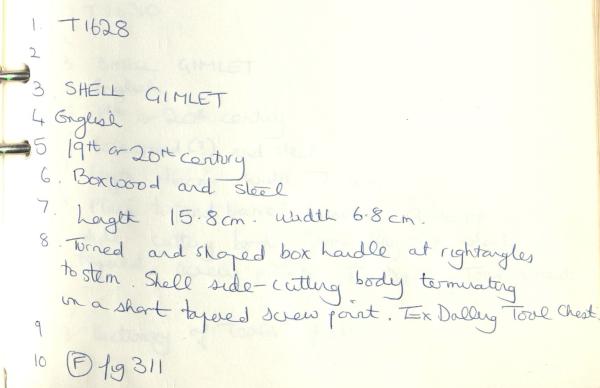 1. T1628
2
3 SHELL GIMLET
4 English
5 19th or 20th century
6. Boxwood and steel
7. Length 15.8cm. Width 6.8cm.
8. Turned and shaped box handle at rightangles
to stem. Shell side-cutting body terminating
in a short tapered screw point. Ex Dalling Tool Chest.
9
10 (F) fg 311